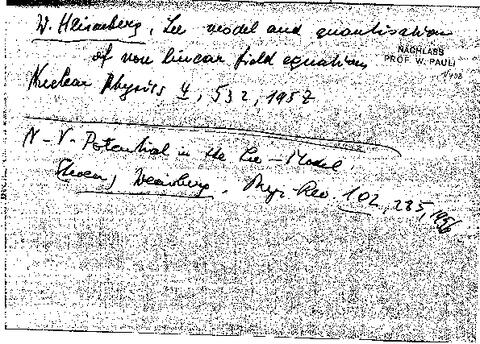 W. Heisenberg, Lee model and quantisation
of non linear field equations
NACHLASS
PROF. W. PAULI
Nuclear Physics 4, 532, 1957
N-V-Potential in the Lee-Model.
Weinberg, Phys. Rev. 102, 285, 1956